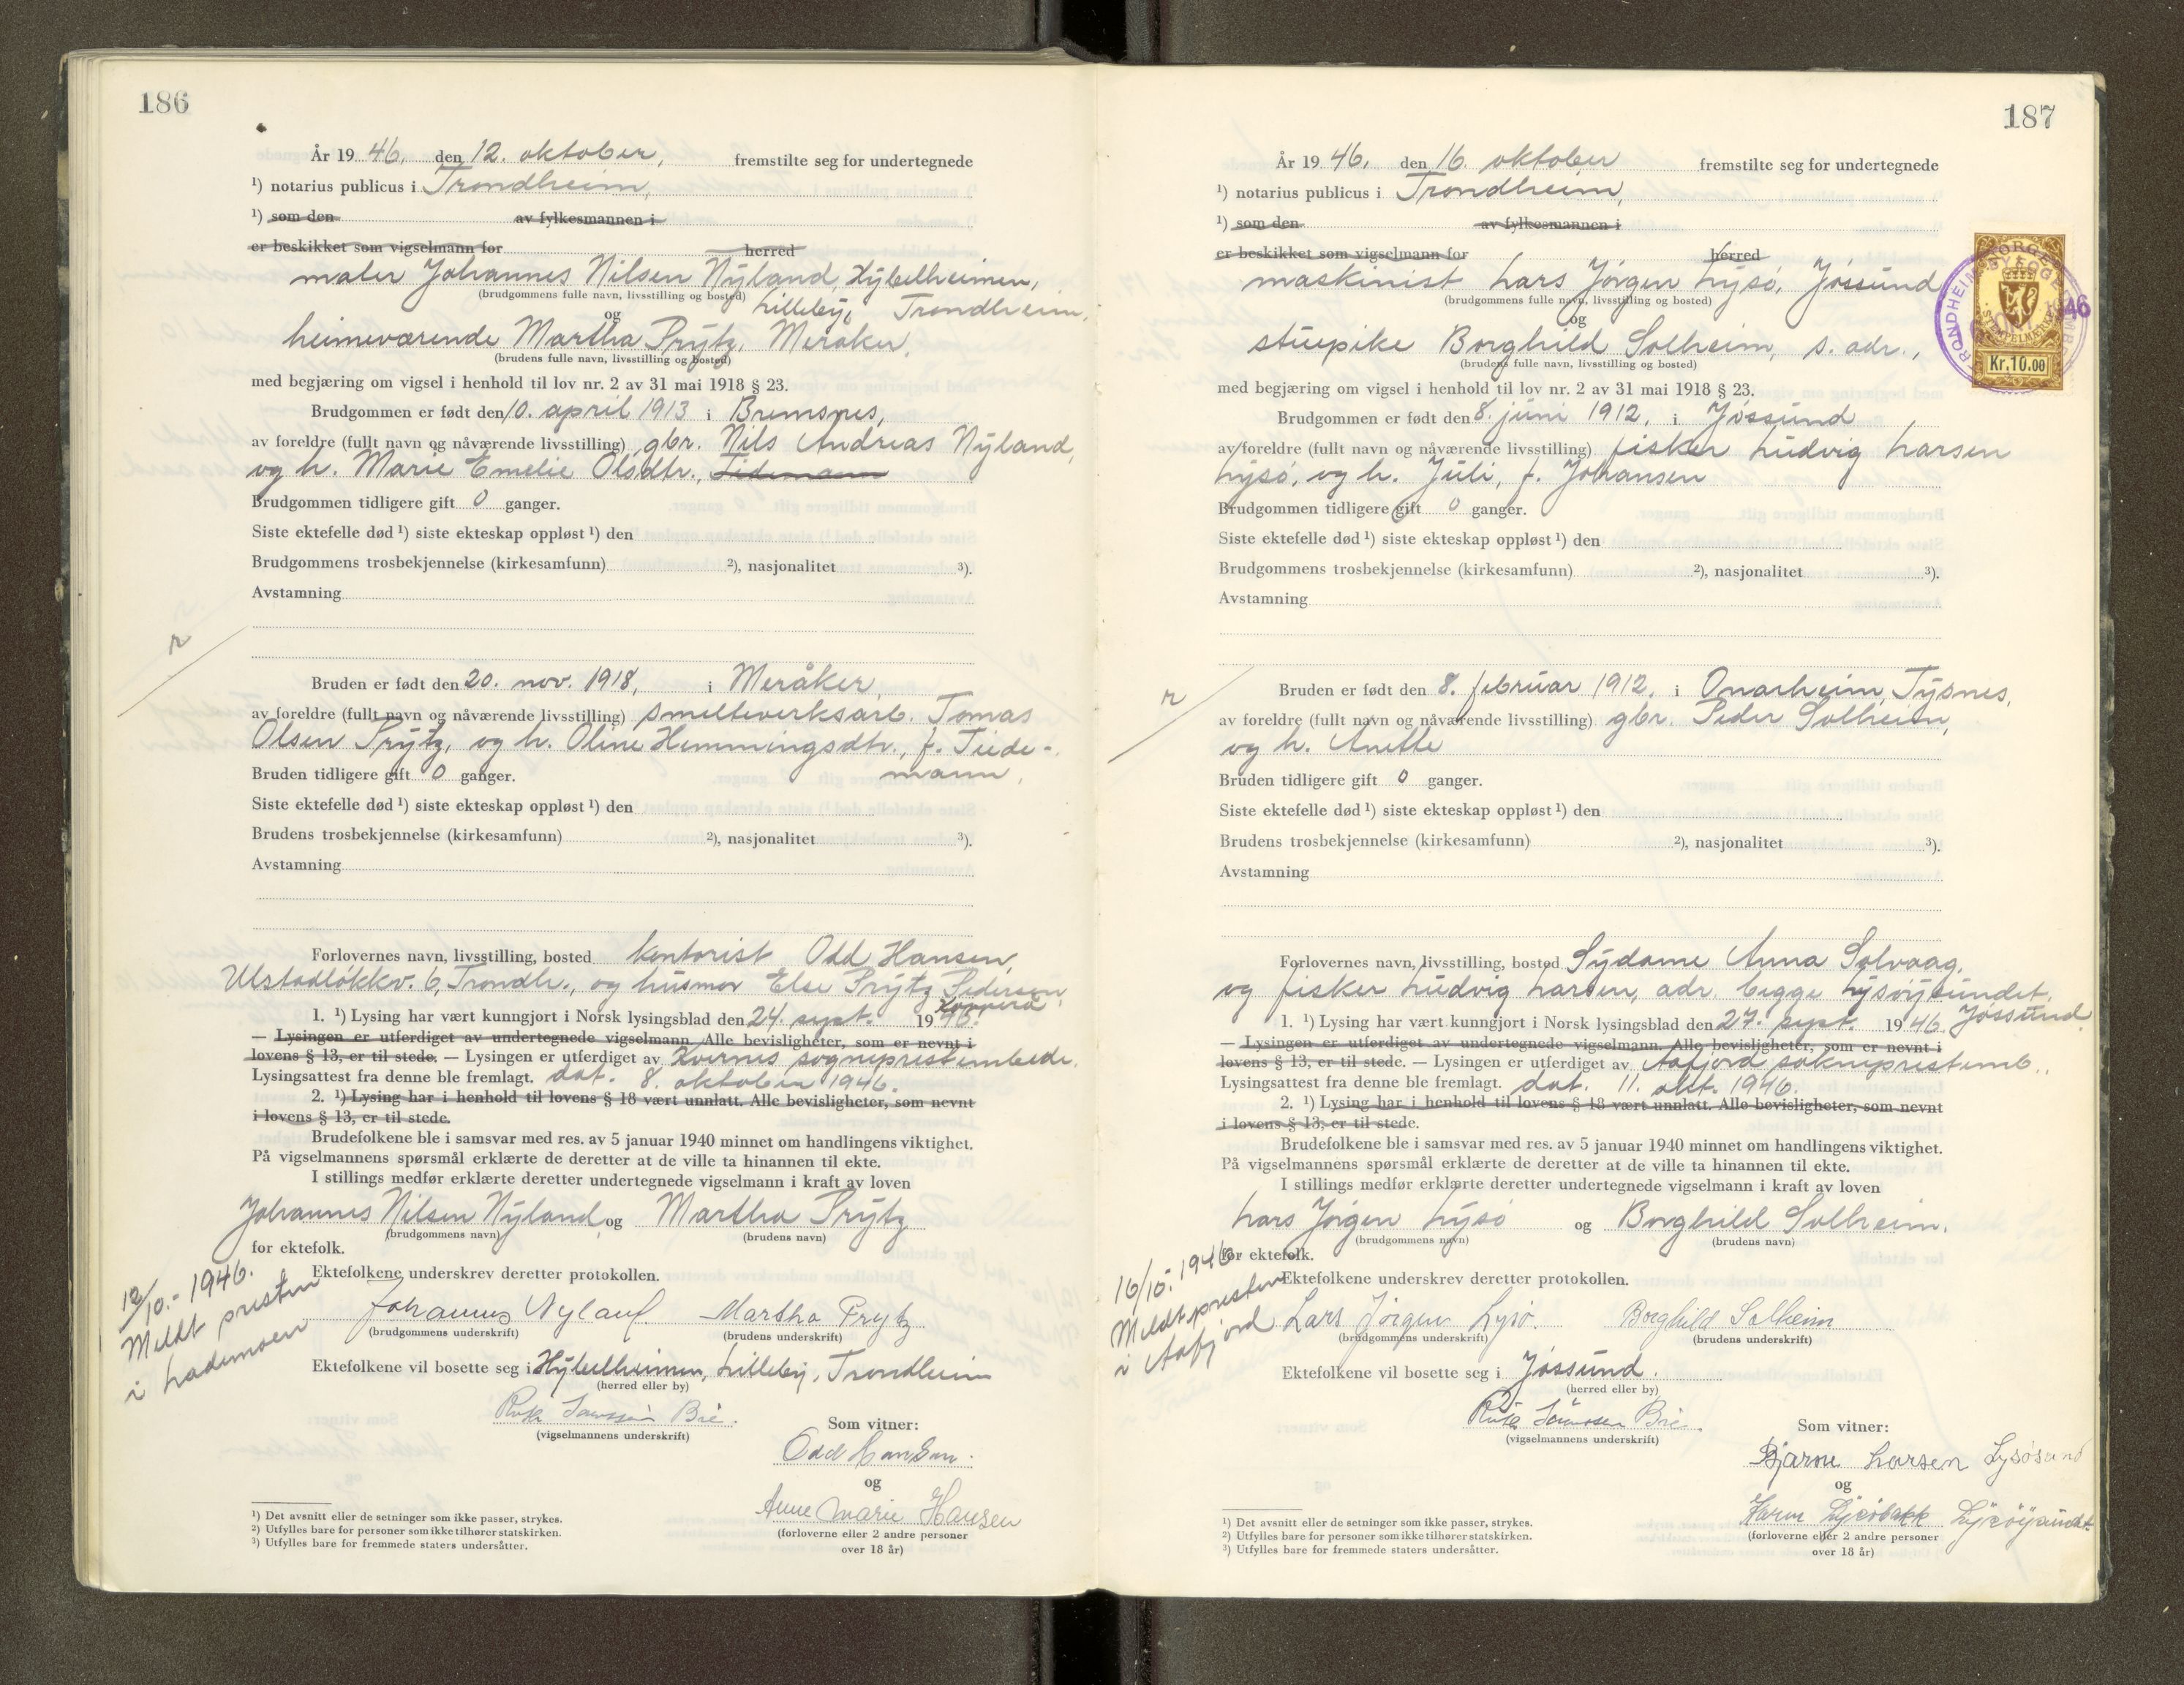 186
År 19 46, den 12. oktober, fremstilte seg for undertegnede
¹) notarius publicus i Trondheim,
¹) som den av fylkesmannen i
er beskikket som vigselmann for herred
maler Johannes Nilsen Nyland, Hybelheimen,
(brudgommens fulle navn, livsstilling og bosted)
Lilleby, Trondheim,
og
heimeværende Martha Prytz, Meråker,
(brudens fulle navn, livsstilling og bosted)
med begjæring om vigsel i henhold til lov nr. 2 av 31 mai 1918 § 23.
Brudgommen er født den 10. april 1913 i Bremsnes,
av foreldre (fullt navn og nåværende livsstilling) gbr. Nils Andreas Nyland,
og h. Marie Emelie Olsdtr., Tidemann
Brudgommen tidligere gift 0 ganger.
Siste ektefelle død ¹) siste ekteskap oppløst ¹) den
Brudgommens trosbekjennelse (kirkesamfunn) ²), nasjonalitet ³).
Avstamning
Bruden er født den 20. nov. 1918, i Meråker,
av foreldre (fullt navn og nåværende livsstilling) smelteverksarb. Tomas
Olsen Prytz, og h. Oline Hemmingsdtr., f. Tiede-
mann,
Bruden tidligere gift 0 ganger.
Siste ektefelle død ¹) siste ekteskap oppløst ¹) den
Brudens trosbekjennelse (kirkesamfunn) ²), nasjonalitet ³).
Avstamning
Forlovernes navn, livsstilling, bosted kontorist Odd Hansen,
Ulstadløkkv. 6, Trondh., og husmor Else Prytz Pedersen,
1. ¹) Lysing har vært kunngjort i Norsk lysingsblad den 24. sept. 19 46.
— Lysingen er utferdiget av undertegnede vigselmann. Alle bevisligheter, som er nevnt i
lovens § 13, er til stede. — Lysingen er utferdiget av Kvernes sogneprestembede.
Lysingsattest fra denne ble fremlagt. dat. 8. oktober 1946.
2. ¹) Lysing har i henhold til lovens § 18 vært unnlatt. Alle bevisligheter, som nevnt
i lovens § 13, er til stede.
Brudefolkene ble i samsvar med res. av 5 januar 1940 minnet om handlingens viktighet.
På vigselmannens spørsmål erklærte de deretter at de ville ta hinannen til ekte.
I stillings medfør erklærte deretter undertegnede vigselmann i kraft av loven
Johannes Nilsen Nyland og Martha Prytz
(brudgommens navn) (brudens navn)
for ektefolk.
Ektefolkene underskrev deretter protokollen.
12/10.- 1946.
Meldt presten
i Lademoen
Johannes Nyland. Martha Prytz
(brudgommens underskrift) (brudens underskrift)
Ektefolkene vil bosette seg i Hybelheimen, Lilleby, Trondheim
(herred eller by)
(vigselmannens underskrift)
Som vitner:
Odd Hansen.
og
Anne Marie Hansen
(forloverne eller 2 andre personer
over 18 år)
¹) Det avsnitt eller de setninger som ikke passer, strykes.
²) Utfylles bare for personer som ikke tilhører statskirken.
³) Utfylles bare for fremmede staters undersåtter.
187
År 19 46, den 16. oktober fremstilte seg for undertegnede
¹) notarius publicus i Trondheim,
¹) som den av fylkesmannen i
er beskikket som vigselmann for herred
maskinist Lars Jørgen Lysø, Jøssund
(brudgommens fulle navn, livsstilling og bosted)
og
stuepike Borghild Solheim, s. adr.,
(brudens fulle navn, livsstilling og bosted)
Kr.10.00
46
med begjæring om vigsel i henhold til lov nr. 2 av 31 mai 1918 § 23.
Brudgommen er født den 8. juni 1912, i Jøssund
av foreldre (fullt navn og nåværende livsstilling) fisker Ludvig Larsen
Lysø, og h. Juli, f. Johansen
Brudgommen tidligere gift 0 ganger.
Siste ektefelle død ¹) siste ekteskap oppløst ¹) den
Brudgommens trosbekjennelse (kirkesamfunn) ²), nasjonalitet ³).
Avstamning
Bruden er født den 8. februar 1912. i Onarheim, Tysnes,
av foreldre (fullt navn og nåværende livsstilling) gbr. Peder Solheim,
og h. Anette
Bruden tidligere gift 0 ganger.
Siste ektefelle død ¹) siste ekteskap oppløst ¹) den
Brudens trosbekjennelse (kirkesamfunn) ²), nasjonalitet ³).
Avstamning
Forlovernes navn, livsstilling, bosted Sydame Anna Solvaag,
og fisker Ludvig Larsen, adr. begge Lysøysundet,
Jøssund.
1. ¹) Lysing har vært kunngjort i Norsk lysingsblad den 27. sept. 19 46.
— Lysingen er utferdiget av undertegnede vigselmann. Alle bevisligheter, som er nevnt i
lovens § 13, er til stede. — Lysingen er utferdiget av Aafjord sokneprestemb.,
Lysingsattest fra denne ble fremlagt. dat. 11. okt. 1946.
2. ¹) Lysing har i henhold til lovens § 18 vært unnlatt. Alle bevisligheter, som nevnt
i lovens § 13, er til stede.
Brudefolkene ble i samsvar med res. av 5 januar 1940 minnet om handlingens viktighet.
På vigselmannens spørsmål erklærte de deretter at de ville ta hinannen til ekte.
I stillings medfør erklærte deretter undertegnede vigselmann i kraft av loven
Lars Jørgen Lysø og Borghild Solheim.
(brudgommens navn) (brudens navn)
for ektefolk.
Ektefolkene underskrev deretter protokollen.
16/10.- 1946
Meldt presten
i Aafjord
Lars Jørgen Lysø. Borghild Solheim
(brudgommens underskrift) (brudens underskrift)
Ektefolkene vil bosette seg i Jøssund.
(herred eller by)
(vigselmannens underskrift)
Som vitner:
Bjarne Larsen Lysøsund
og
Karen Lysøbakk Lysøysundet
(forloverne eller 2 andre personer
over 18 år)
¹) Det avsnitt eller de setninger som ikke passer, strykes.
²) Utfylles bare for personer som ikke tilhører statskirken.
³) Utfylles bare for fremmede staters undersåtter.